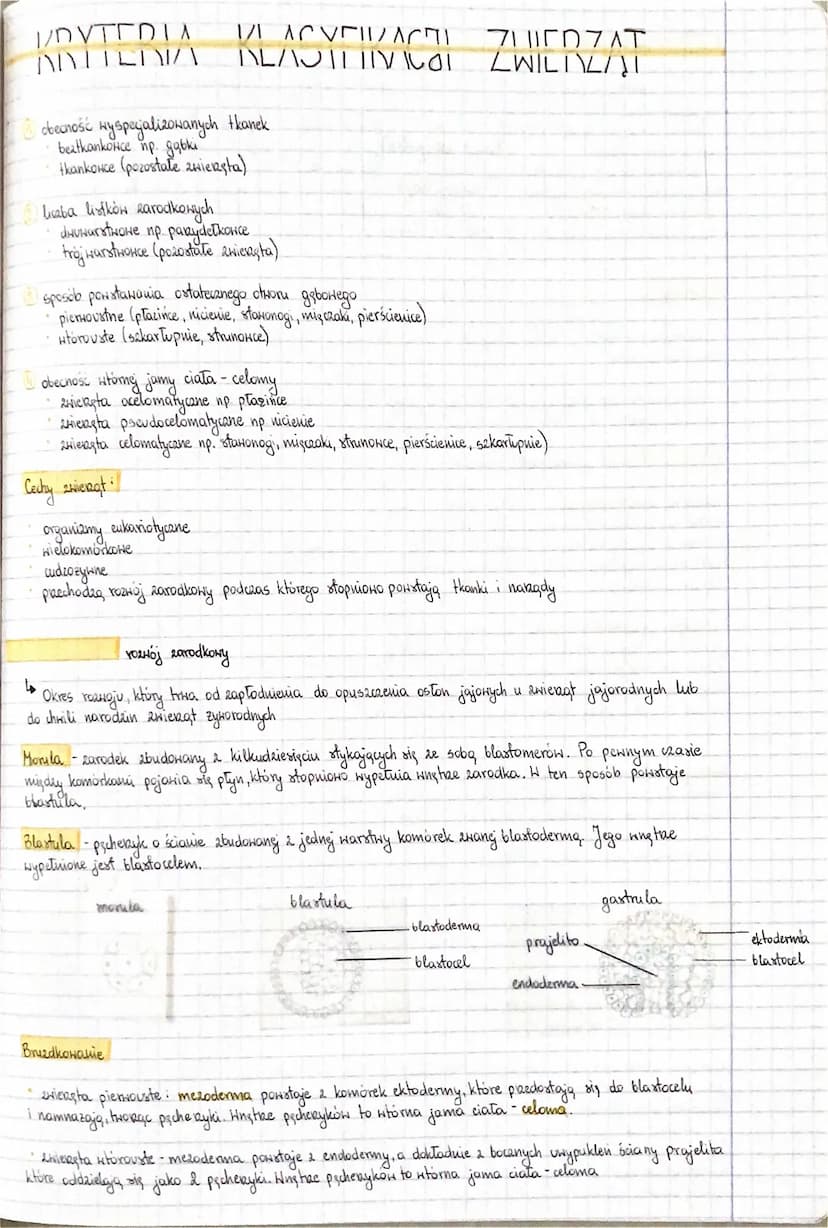 KRYTERIA KLASYFIKACJI ZWIERZĄT
1 obecność wyspecjalizowanych tkanek
beztkankowce np. gąbki
tkankowce (pozostałe zwierzęta)
liczba listków zarodkowych
dwuwarstwowe np. parzydełkowce
trójwarstwowce (pozostałe zwierzęta)
sposób powstawania ostatecznego otworu gębowego
pierwoustne (płazińce, nicienie, stawonogi, mięczaki, pierścienice)
wtórouste (szkarłupnie, strunowce)
obecność wtórnej jamy ciała - celomy
zwierzęta acelomatyczne np płazińce
zwierzęta pseudocelomatyczne np nicienie
zwierzęta celomatyczne np. stawonogi, mięczaki, strunowce, pierścienice, szkarłupnie)
Cechy zwierząt:
organizmy eukariotyczne
wielokomórkowe
cudzożywne
przechodzą rozwój zarodkowy podczas którego stopniowo powstają tkanki i narządy
rozwój zarodkowy
↳ Okres rozwoju, który trwa od zapłodnienia do opuszczenia osłon jajowych u zwierząt jajorodnych lub
do chwili narodzin zwierząt żyworodnych
Morula - zarodek zbudowany z kilkudziesięciu stykających się ze sobą blastomerów. Po pewnym czasie
między komórkami pojawia się płyn, który stopniowo wypełnia wnętrze zarodka. W ten sposób powstaje
blastula.
Blastula - pęcherzyk o ścianie zbudowanej z jednej warstwy komórek zwanej blastodermą. Jego wnętrze
wypełnione jest blastocelem.
morula
blastula
gastrula
blastoderma
blastocel
prajelito
endoderma
ektodermia
blastocel
Bruzdkowanie
zwierzęta pierwouste: mezoderma powstaje z komórek ektodermy, które przedostają się do blastocelu
i namnażają, tworząc pęcherzyki. Wnętrze pęcherzyków to wtórna jama ciała - celoma.
zwierzęta wtórouste - mezoderma powstaje z endodermy, a dokładnie z bocznych uwypukleń ściany prajelita
które oddzielają się jako 2 pęcherzyki. Wnętrze pęcherzyków to wtórna jama ciała - celoma